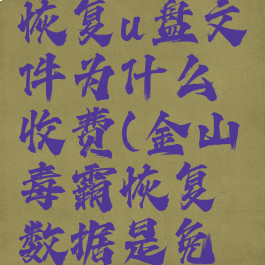 恢复u盘文
件为什么
收费(金山
毒霸恢复
数据是免